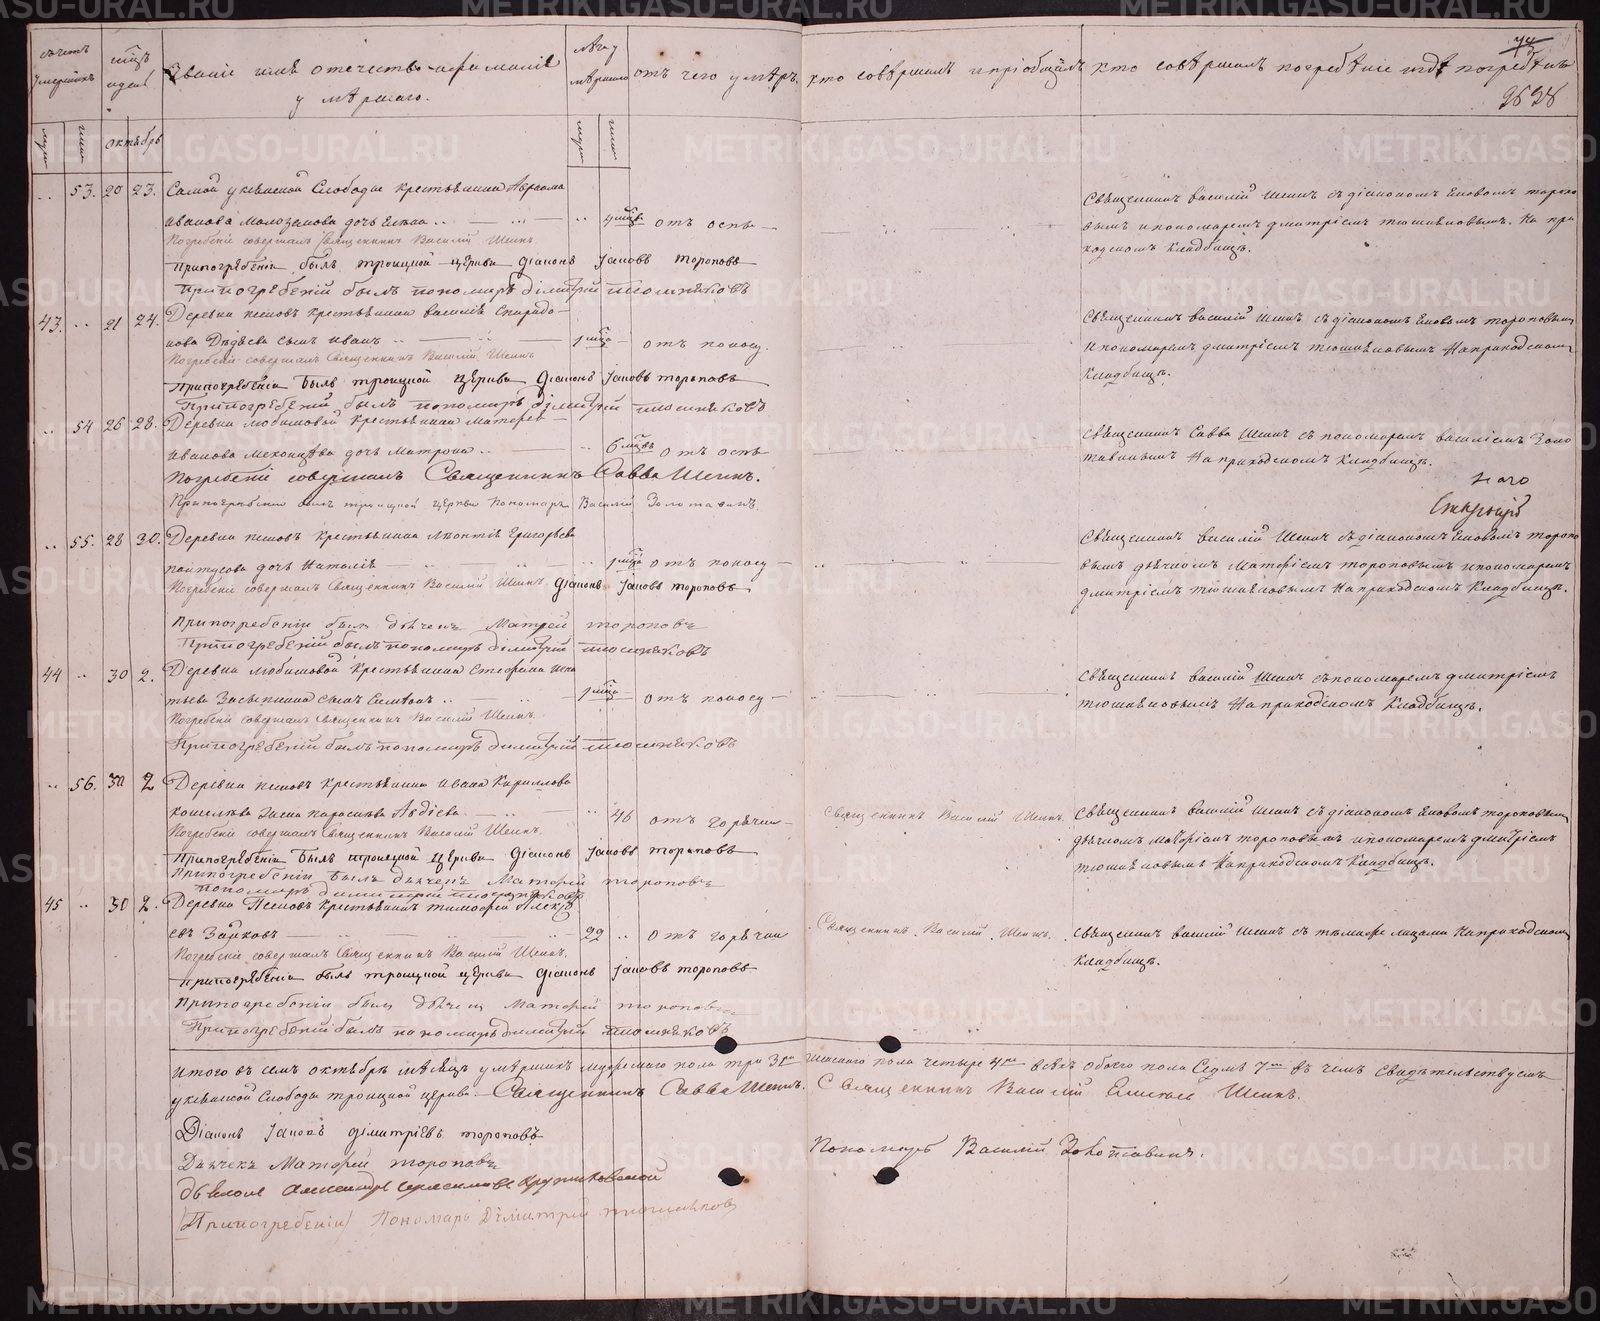 счетъ умершихъ
мцъ и день
Званіе имя отечество и фамилія
умершаго.
лѣта умершаго
отъ чего умеръ
кто совершалъ и пріобщалъ
кто совершалъ погребѣніе и гдѣ погребѣнъ
октябрь
53. 20 23. Самой уксянской Слободы крестьянина Авраама
Иванова Малоземова дочь Елена 4 мцвъ отъ оспы
Погребеніе совершалъ Священникъ Василій Шеинъ
Припогрѣбеніи былъ троицкой церкви Діаконъ Іаковъ тороповъ
При погребеній былъ пономарь Димитрій тюшняковъ
Священникъ василій Шеинъ съ діакономъ Іаковомъ торопо
вымъ и пономаремъ дмитріемъ тюшняковымъ. На при
ходскомъ кладбищѣ.
43. 21 24. Деревни песковъ крестьянина василія Спиридо
нова Дѣдѣева сынъ иванъ 1 мца отъ поносу.
Погребеніе совершалъ Священникъ Василій Шеинъ
Припогрѣбеніи былъ троицкой церкви Діаконъ Іаковъ тороповъ
Припогребеній былъ пономарь Димитрій тюшняковъ
Священникъ василій Шеинъ съ діакономъ Іаковомъ тороповымъ
и пономаремъ дмитріемъ тюшняковымъ На приходскомъ
кладбищѣ.
54 26 28. Деревни любимовой крестьянина
Иванова дочь Матрона 6 мцвъ отъ оспы
Погребеніе совершалъ Священникъ Савва Шеинъ.
Припогребеніи былъ троицкой церкви Пономарь Василій Золотавинъ
Священникъ Савва Шеинъ съ пономаремъ василіемъ Золо
тавинымъ На приходскомъ кладбищѣ.
55. 28 30. Деревни песковъ крестьянина Леонтія Григорьева
пантусова дочь Наталія 1 мца отъ поносу
Погребеніе совершалъ Священникъ Василій Шеинъ Діаконъ Іаковъ тороповъ
Припогребеніи былъ дьячекъ Матфей тороповъ
Припогребеній былъ пономарь Димитрій тюшняковъ
Священникъ василій Шеинъ съ діакономъ Іаковомъ торопо
вымъ дьячкомъ Матфіемъ тороповымъ и пономаремъ
дмитріемъ тюшняковымъ На приходскомъ кладбищѣ.
44 30 2. Деревни любимовой крестьянина Стефана Игна
тьева Засыпкина сынъ 1 мца отъ поносу
Погребеніе совершалъ Священникъ Василій Шеинъ.
Припогребеній былъ пономарь Димитрій тюшняковъ
Священникъ василій Шеинъ съ пономаремъ дмитріемъ
тюшняковымъ На приходскомъ кладбищѣ.
56. 30 2 Деревни песковъ крестьянина ивана Кириллова
кошелева жена параскева Авдіева 46 отъ горячки
Погребеніе совершалъ Священникъ Василій Шеинъ.
Припогрѣбеніи былъ троицкой церкви Діаконъ Іаковъ тороповъ
Припогребеніи былъ дьячекъ Матфей тороповъ
пономарь димитрій тюшняковъ
Священникъ Василій Шеинъ.
Священникъ василій Шеинъ съ діакономъ Іаковомъ тороповымъ
дьячкомъ Матфіемъ тороповымъ и пономаремъ дмитріемъ
тюшняковымъ На приходскомъ кладбищѣ.
45 30 2. Деревни Песковъ крестьянинъ тимофей Алексѣ
евъ Зайковъ 22 отъ горячки
Погребеніе совершалъ Священникъ Василій Шеинъ.
Припогрѣбеніи былъ троицкой церкви Діаконъ Іаковъ тороповъ
Припогребеніи былъ дьячекъ Матфей тороповъ
Припогребеній былъ пономарь Димитрій тюшняковъ
Священникъ Василій Шеинъ.
Священникъ василій Шеинъ съ тѣмиже лицами На приходскомъ
кладбищѣ.
Итого въ семъ октябрѣ мѣсяцѣ умершихъ мужескаго пола три 3 женскаго пола четыре 4 всѣхъ обоего пола Седмь 7 въ чемъ свидѣтельствуемъ
уксянской Слободы троицкой церкви Священникъ Савва Шеинъ. Священникъ Василій Шеинъ.
Діаконъ Іаковъ Димитріевъ тороповъ
Пономарь Василій Золотавинъ.
Дьячекъ Матфей тороповъ
(Припогребеніи) Пономарь Димитрій тюшняковъ
METRIKI.GASO-URAL.RU